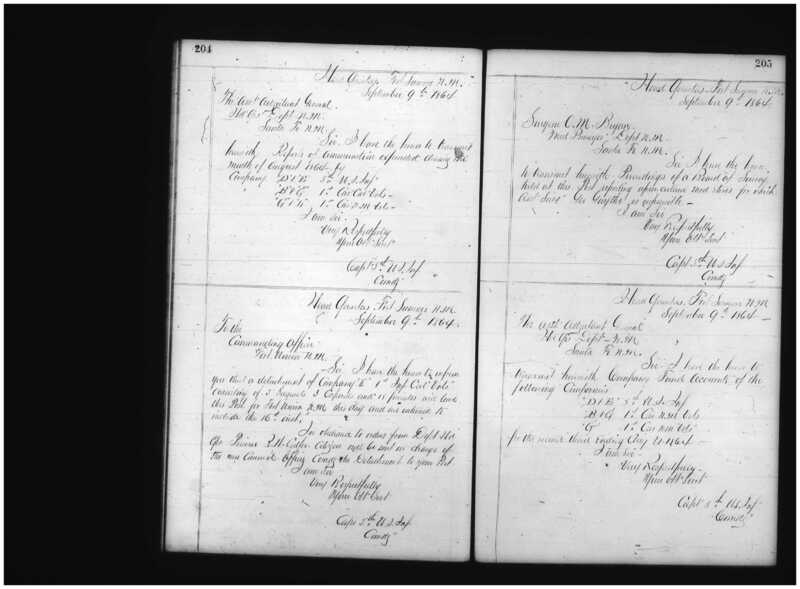 204
Head Quarters Fort Sumner N.M.
September 9th 1864
The Asst Adjutant General
Hd Qrs Dept N.M.
Santa Fe N.M.
Sir, I have the honor to transmit
herewith Reports of ammunition expended during the
month of August 1864 by
Company "D & E" 5th U.S. Inf
"B & G" 1st Cav Cal Vols
1st Cav N.M. Vols
I am Sir
Very Respectfully
Your Obt Servt
Capt 5th U.S. Inf
Comdg
Head Quarters, Fort Sumner N.M.
September 9th 1864.
To the
Commanding Officer
Fort Union N.M.
Sir, I have the honor to inform
you that a detachment of Company 1st Inf Cal Vols
consisting of 3 Sergeants 3 Corporals and 11 privates will leave
this Post for Fort Union N.M. this day and are ordered to
the 16th inst.
In obedience to orders from Dept Hd
Qrs citizen will be sent in charge of
the non Commd Officer Comdg the Detachment to your Post
I am Sir
Very Respectfully
Your Obt Servt
Capt 5th U.S. Inf
Comdg
205
Head Quarters Fort Sumner N.M.
September 9th 1864
Surgeon C. M.
Med Purveyor Dept N.M.
Santa Fe N.M.
Sir I have the honor
to transmit herewith Proceedings of a Board of Survey
held at this Post reporting upon certain med stores for which
Asst Surg Geo Gwyther is responsible
I am Sir
Very Respectfully
Your Obt Servt
Capt 5th U.S. Inf
Comdg
Head Quarters, Fort Sumner N.M.
September 9th 1864
The Asst Adjutant General
Hd Qrs Dept N.M.
Santa Fe N.M.
Sir I have the honor to
transmit herewith Company Fund Accounts of the
following Companies
"D & E" 5th U.S. Inf
1st Cav N.M. Vols
"G" 1st Cav N.M. Vols
for the ending Aug 31 1864
I am Sir
Very Respectfully
Your Obt Servt
Capt 5th U.S. Inf
Comdg